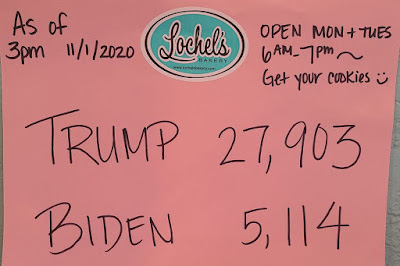 As of
3pm 11/1/2020
Lochel's
BAKERY
OPEN MON + TUES
6AM-7pm~
Get your cookies :)
TRUMP 27,903
BIDEN 5,114